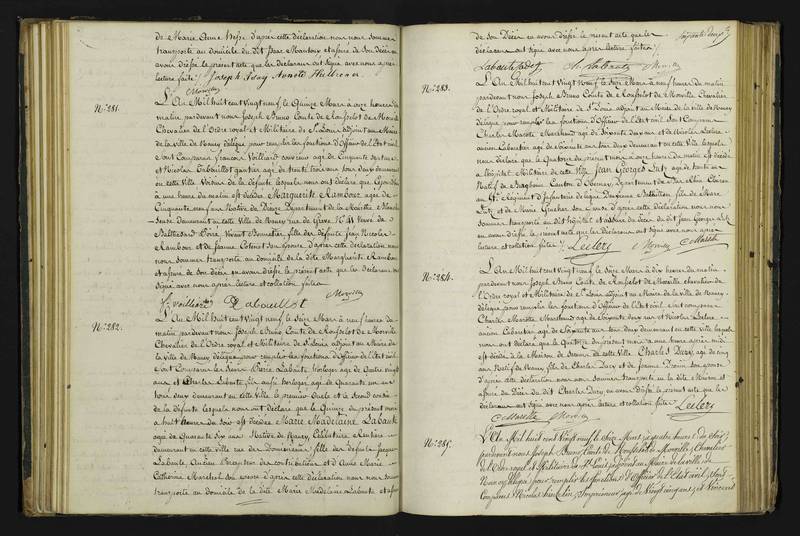 de Marie Anne Hesse d'après cette déclaration nous nous sommes
transporté au domicile du dit Isaac Mantoux et assuré de son décès en
avons dressé le présent acte que les déclarans ont signé avec nous après
lecture faite. Joseph Isay
Morville
N.° 281.
L'An Mil huit cent Vingt neuf le Quinze Mars à onze heures du
matin pardevant nous Joseph Bruno Comte de Rousselot de Morville
Chevalier de l'Ordre royal et Militaire de S.t Louis adjoint au Maire
de la ville de Nancy délégué pour remplir les fonctions d'Officier de l'Etat civil
sont Comparus François Voilliard agé de Cinquante
et Nicolas Tabouillot agé de trente trois ans tous deux demeurant
en cette ville Voisins de la défunte lesquels nous ont déclaré que
à une heure du matin est décédée Marguerite Rambour agée de
Cinquante neuf ans Native de Dieuze Département de la Meurthe
demeurant en cette Ville de Nancy rue de Grève N.° 11 Veuve de
Balthazard Poiré Vivant Bonnetier fille des défunts Jean Nicolas
Rambour et de Jeanne son épouse d'après cette déclaration nous
nous sommes transporté au domicile de la dite Marguerite Rambour
et assuré de son décès en avons dressé le présent acte que les déclarans ont
signé avec nous après lecture et collation faites
Morville
Tabouillot
N.° 282.
L'An Mil huit cent Vingt neuf le Seize Mars à neuf heures du
matin pardevant nous Joseph Bruno Comte de Rousselot de Morville
Chevalier de l'Ordre royal et Militaire de S.t Louis adjoint au Maire de
la ville de Nancy délégué pour remplir les fonctions d'Officier de l'Etat civil
sont Comparus les Sieurs Pierre Labaute horloger agé de Quatre vingt
ans et Charles Labaute fils aussi horloger agé de Quarante un ans
tous deux demeurant en cette ville le premier Oncle et le Second cousin
de la défunte lesquels nous ont déclaré que le Quinze du présent mois
à huit heures du soir est décédée Marie Madelaine Labaute
agée de Quarante Six ans Native de Nancy Célibataire Rentière
demeurant en cette ville rue des Dominicains fille des défunts Jacques
Labaute Ancien Receveur des contributions et d'Anne Marie
Catherine Marchal son épouse d'après cette déclaration nous nous sommes
transporté au domicile de la dite Marie Madelaine Labaute et assuré
Soixante douze
de son Décès en avons dressé le présent acte que les
déclarans ont signé avec nous après lecture faites
Labaute Morville
N.° 283.
L'An Mil huit cent Vingt neuf le Seize Mars à neuf heures du matin
pardevant nous Joseph Bruno Comte de Rousselot de Morville Chevalier
de l'Ordre royal et Militaire de S.t Louis adjoint au Maire de la ville de Nancy
délégué pour remplir les fonctions d'Officier de l'Etat civil sont Comparus
Charles Marotte Marchand agé de Soixante deux ans et Nicolas Leclere
ancien Cabaretier agé de Soixante ans tous deux demeurant en cette Ville lesquels
nous ont déclaré que le Quatorze du présent mois à onze heures du matin est décédé
à l'hôpital Militaire de cette Ville Jean Georges Lutz agé de trente ans
Natif de Canton d'Obernay, Département du Bas Rhin
au Régiment d'Infanterie de ligne fils de
Lutz et de Marie son Epouse d'après cette déclaration nous nous
sommes transporté au dit hôpital et assuré du décès du dit Jean Georges Lutz
en avons dressé le présent acte que les déclarans ont signé avec nous après
lecture et collation faites Leclere Morville Marotte
N.° 284.
L'An Mil huit cent Vingt neuf le Seize Mars à dix heures du matin
pardevant nous Joseph Bruno Comte de Rousselot de Morville chevalier de
l'Ordre royal et Militaire de S.t Louis adjoint au Maire de la ville de Nancy
délégué pour remplir les fonctions d'Officier de l'Etat civil sont comparus
Charles Marotte Marchand agé de Soixante deux ans et Nicolas Leclere
ancien Cabaretier agé de Soixante ans tous deux demeurant en cette ville lesquels
nous ont déclaré que le Quatorze du présent mois à une heure après midi
est décédé à la Maison de Secours de cette Ville Charles Ducy agé de cinq
ans Natif de Nancy, fils de Charles Ducy et de Jeanne son épouse
d'après cette déclaration nous nous sommes transporté en la dite Maison et
assuré du Décès du dit Charles Ducy en avons dressé le présent acte que les
déclarans ont signé avec nous après lecture et collation faites Leclere
Marotte Morville
N.° 285.
L'An Mil huit cent Vingt neuf le Seize Mars à quatre heures du Soir
pardevant nous Joseph Bruno Comte de Rousselot de Morville Chevalier
de l'Ordre royal et Militaire de S.t Louis adjoint au Maire de la ville de
Nancy délégué pour remplir les fonctions d'Officier de l'Etat civil, Sont
Comparus Nicolas Imprimeur agé de Vingt cinq ans, et Vincent